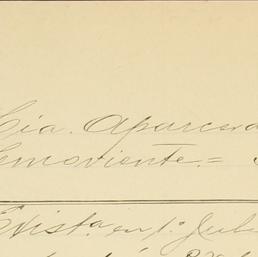 Cia. Aparcera
Semoviente.=
Exist.ª en 1º Jul